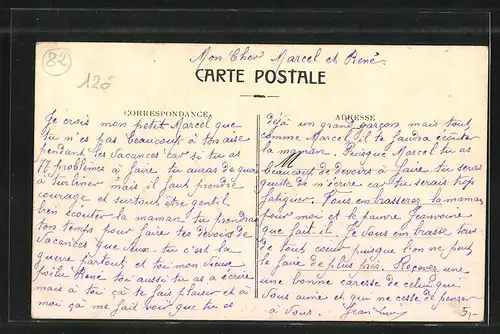 82
120
Mon Cher Marcel et René.
CARTE POSTALE
CORRESPONDANCE
Je crois mon petit Marcel que
tu n'es pas beaucoup à ton aise
pendant les vacances car si tu as
77 problèmes à faire tu auras de quoi
à mais il faut prendre
courage et surtout être gentil
bien écouter la maman tu prendras
ton temps pour faire tes devoirs de
vacances que veux-tu c'est la
guerre partout et toi mon vieux
poilu René toi aussi tu as à écrire
mais à toi ça te fait plaisir et à
moi ça me fait voir que tu es
ADRESSE
déjà un grand garçon mais tout
comme Marcel il te faudra écouter
la maman. Puisque Marcel tu as
beaucoup de devoirs à faire tu seras
quitte de m'écrire car tu serais trop
fatiguer. Vous embrasserez la maman
pour moi et le pauvre
que fait-il. Je vous embrasse tous
de tout coeur puisque l'on ne peut
le faire de plus près. Recevez une
une bonne caresse de celui qui
vous aime et qui ne cesse de penser
à vous. Jean
5,-